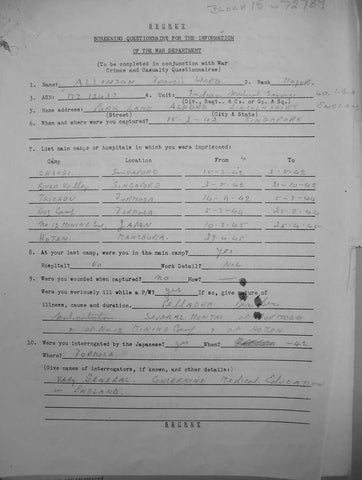 SECRET
SCREENING QUESTIONNAIRE FOR THE INFORMATION
OF THE WAR DEPARTMENT
(To be completed in conjunction with War
Crimes and Casualty Questionnaires)
1. Name: ALLINSON Francis WARD 2. Rank MAJOR
3. ASN: 4. Unit: Indian Medical Service
(Div., Regt., & Co. or Gp. & Sq.)
5. Home address: PARK LANE ALFORD LINCOLNSHIRE ENGLAND
(Street) (City & State)
6. When and where were you captured? 15-2-42 SINGAPORE
7. List main camps or hospitals in which you were imprisoned:
Camp Location From To
CHANGI SINGAPORE 15-2-42 3-5-42
River Valley SINGAPORE 3-5-42 31-10-42
TAICHOU FORMOSA 14-11-42 5-7-44
Camp FORMOSA 5-7-44 25-2-44
MINING CAMP JAPAN 10-3-45 25-4-45
HOTEN MANCHURIA 29-4-45
8. At your last camp, were you in the main camp? Yes
Hospital? No Work Detail? No
9. Were you wounded when captured? no How?
Were you seriously ill while a P/W? Yes If so, give nature of
illness, cause and duration. Pellagra Beri Beri
Malnutrition SEVERAL MONTHS at FORMOSA
& at MINING Camp & at HOTEN
10. Were you interrogated by the Japanese? yes When? -42
Where? FORMOSA
(Give names of interrogators, if known, and other details:)
Very GENERAL. CONCERNING Medical Education
in ENGLAND.
SECRET